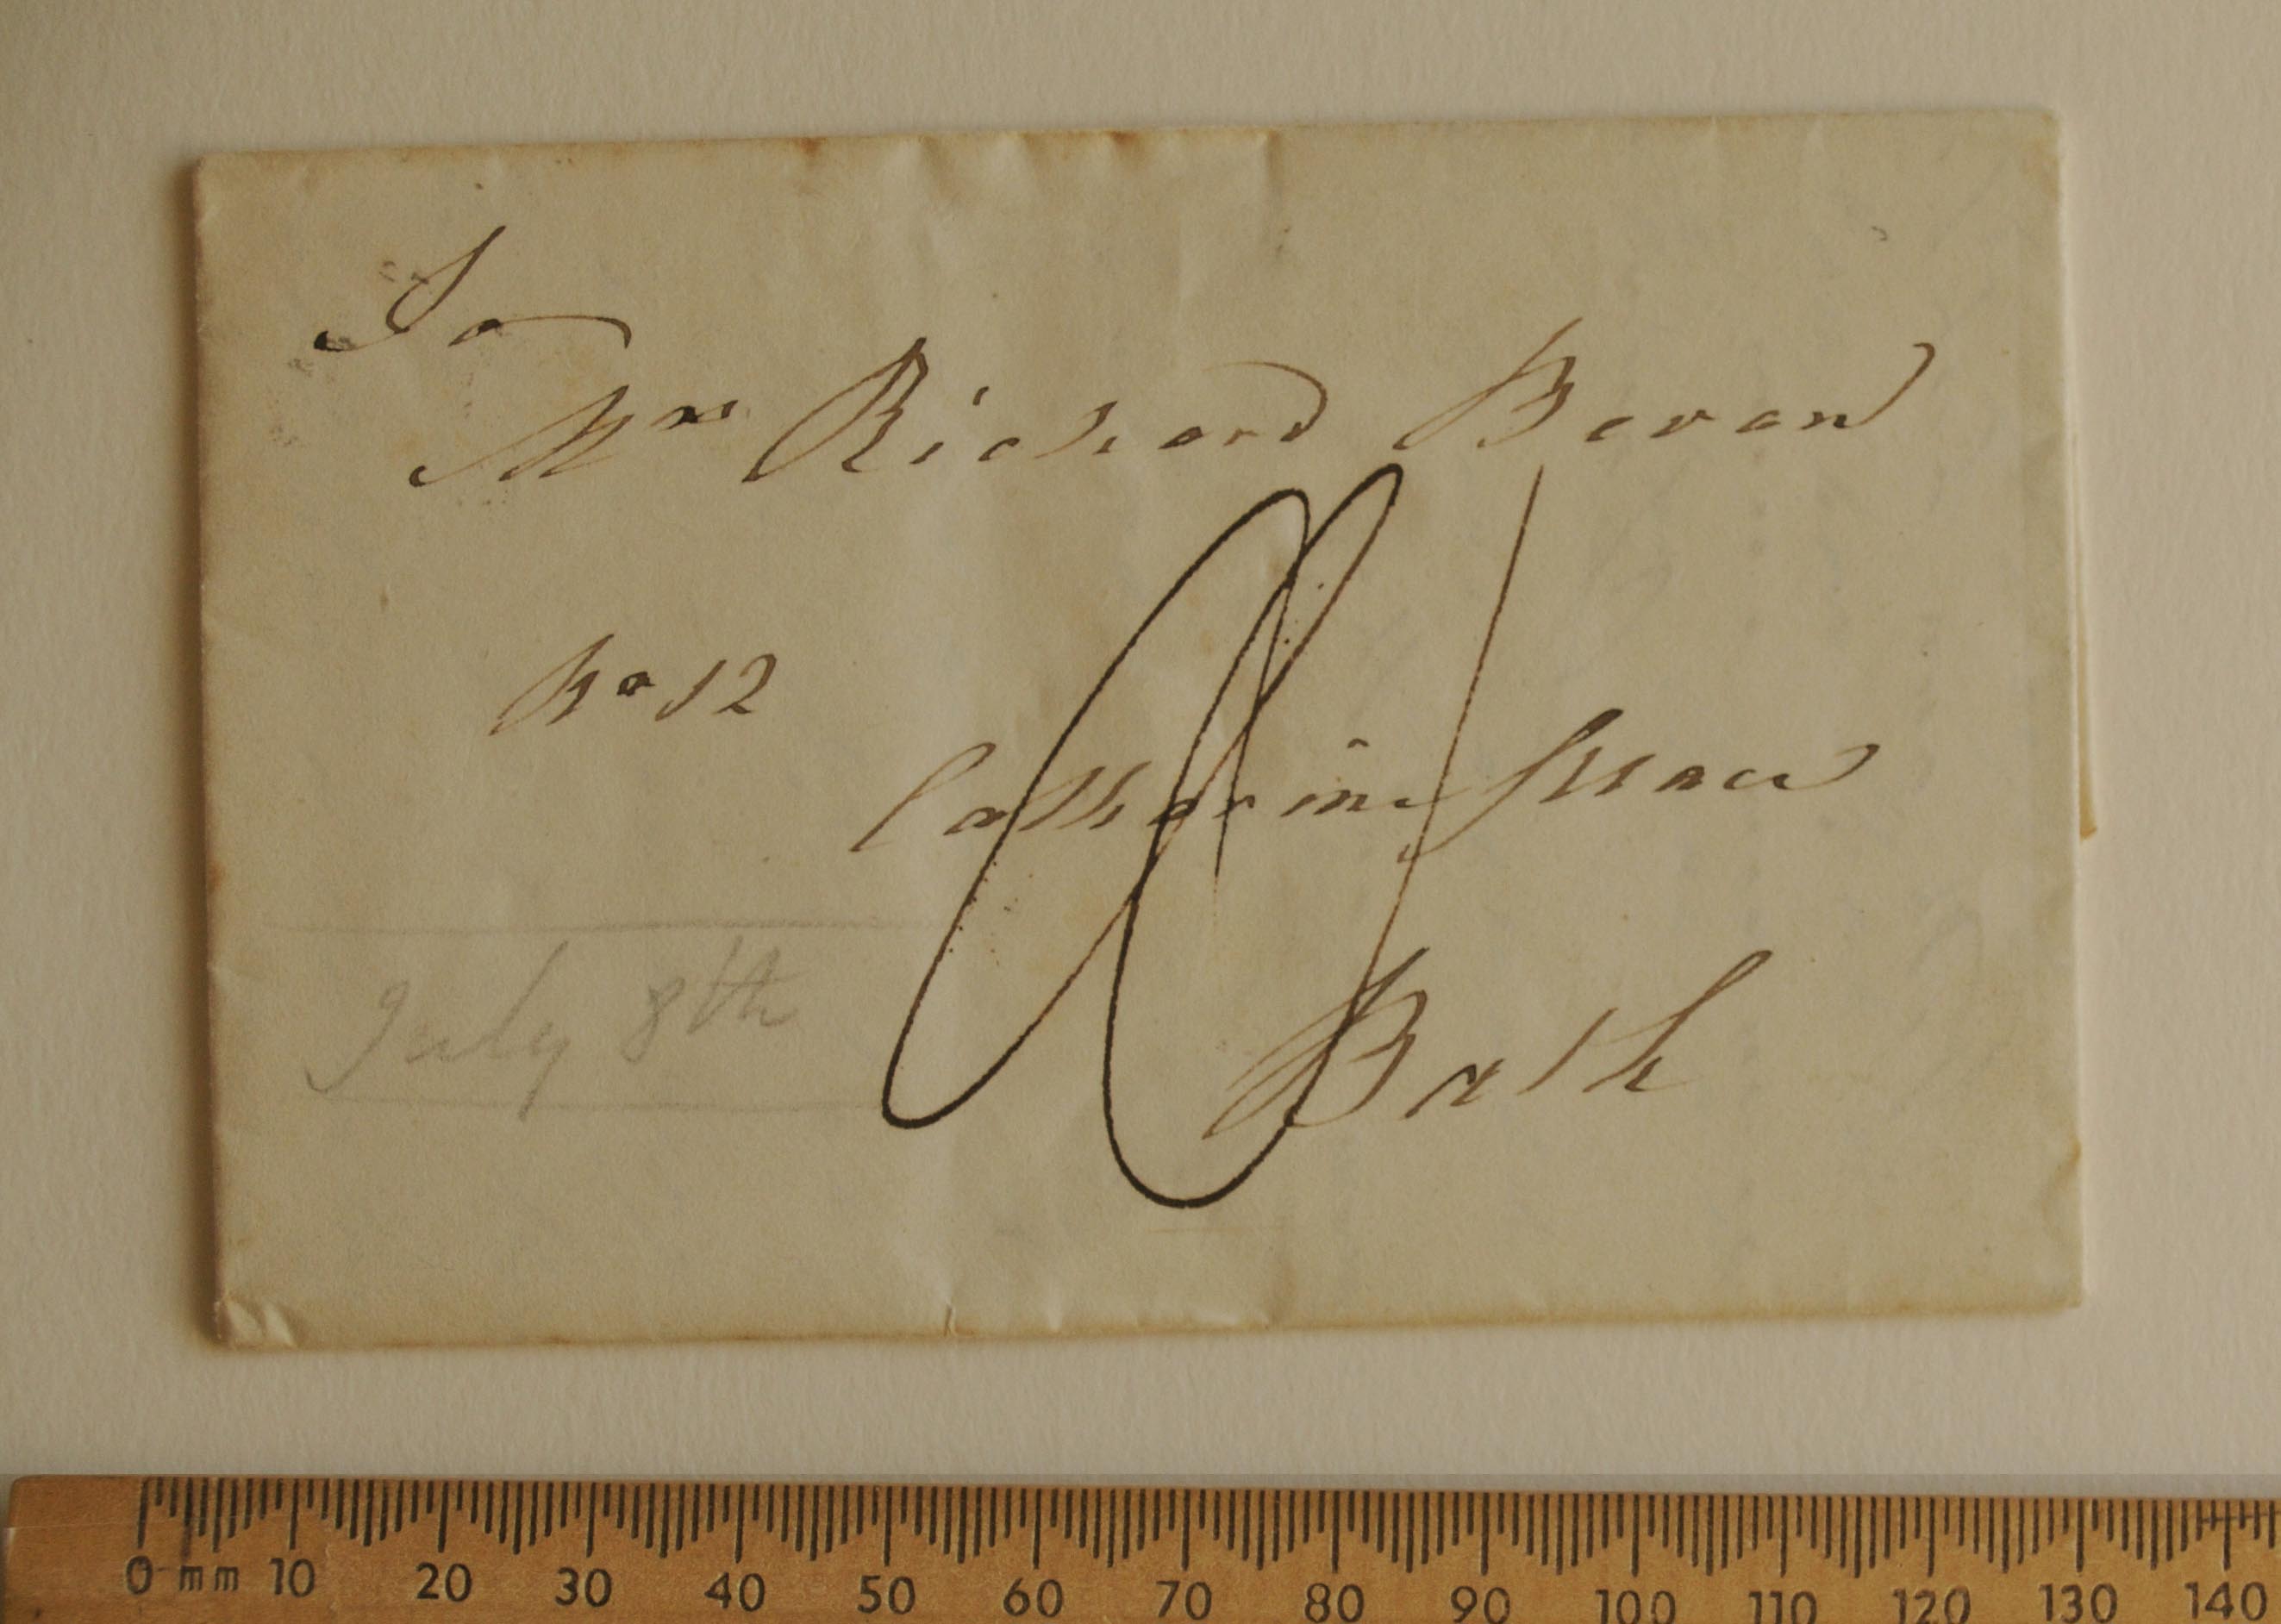 To
Mrs Richard Bevan
No 12
Catharine Place
Bath
July 8th
0 mm 10 20 30 40 50 60 70 80 90 100 110 120 130 140